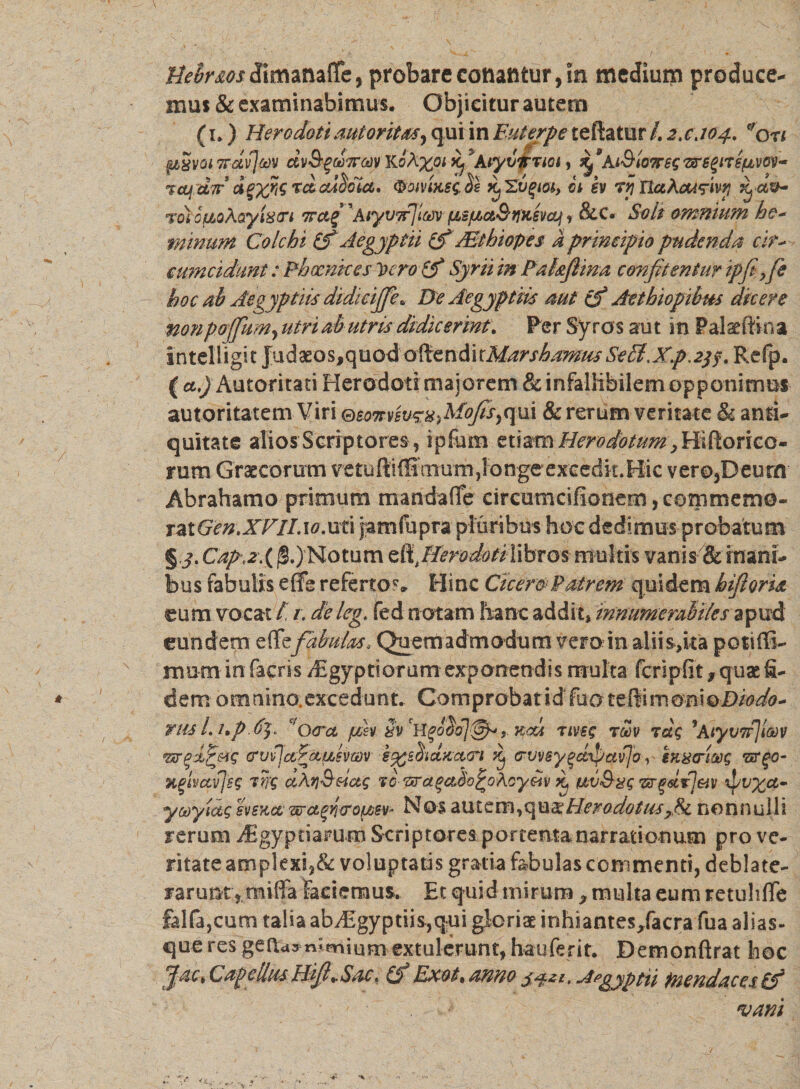 Hebræos dimanaſſe, probare conantur, in medium produce-
mus & examinabimus. Objicitur autem
(1.) Herodoti autoritas, qui in Euterpe teſtatur l. 2.c.104. ὅτι
μȣ̃νοι πάντων ἀνθρώπων Κόλχοι ϗ Ἀιγύπτιοι, ϗ Ἀιθίοπες περιτέμνον-
ται ἀπ' ἀρχῆς τὰ αἰδοῖα. Φοίνικες δὲ ϗ Σύριοι, οἱ ἐν τῇ Παλαιστίνῃ ϗ αυ-
τοὶ ὁμολογίȣσι παρ' Ἀιγυπτίων μεμαθηκέναι, &c. Soli omnium ho-
minum Colchi & Aegyptii & Æthiopes à principio pudenda cir-
cumcidunt: Phœnices vero & Syrii in Palæſtina confitentur ipſi, ſe
hoc ab Aegyptiis didiciſſe. De Aegyptiis aut & Aethiopibus dicere
non poſſum, utri ab utris didicerint. Per Syros aut in Palæſtina
intelligit Judæos, quod oſtendit Marshamus Sect. X.p.235. Reſp.
(α.) Autoritati Herodoti majorem & infallibilem opponimus
autoritatem Viri Θεοπνεύςȣ, Moſis, qui & rerum veritate & anti-
quitate alios Scriptores, ipſum etiam Herodotum, Hiſtorico-
rum Græcorum vetuſtiſſimum, longe excedit. Hic vero, Deum
Abrahamo primum mandaſſe circumciſionem, commemo-
rat Gen. XVII.10. uti jam ſupra pluribus hoc dedimus probatum
§.3. Cap.2. (β.) Notum eſt, Herodoti libros multis vanis & inani-
bus fabulis eſſe refertos. Hinc Cicero Patrem quidem hiſtoriæ
eum vocat l. 1. de leg. ſed notam hanc addit, innumerabiles apud
eundem eſſe fabulas. Quemadmodum vero in aliis, ita potiſſi-
mum in ſacris Ægyptiorum exponendis multa ſcripſit, quæ fi-
dem omnino excedunt. Comprobat id ſuo teſtimonio Diodo-
rus l. 1. p. 63. Ὅσα μὲν ȣ̓ν Ἡρόδοτ@, καὶ τινες τῶν τὰς Ἀιγυπτίων
πράξεις συνταξαμένων ἐσχεδιάκασι ϗ συνεγράψαντο, ἑκȣσίως προ-
κρίναντες τῆς ἀληθείας τὸ παραδοξολογεῖν ϗ μύθȣς πράττειν ψυχα-
γωγίας ἕνεκα παρήσομεν. Nos autem, quæ Herodotus, & nonnulli
rerum Ægyptiarum Scriptores portenta narrationum pro ve-
ritate amplexi, & voluptatis gratia fabulas commenti, deblate-
rarunt, miſſa faciemus. Et quid mirum, multa eum retuliſſe
falſa, cum talia ab Ægyptiis, qui gloriæ inhiantes, ſacra ſua alias-
que res geſtas nimium extulerunt, hauſerit. Demonſtrat hoc
Jac. Capellus Hiſt. Sac. & Exot. anno 3421. Aegyptii mendaces &
vani